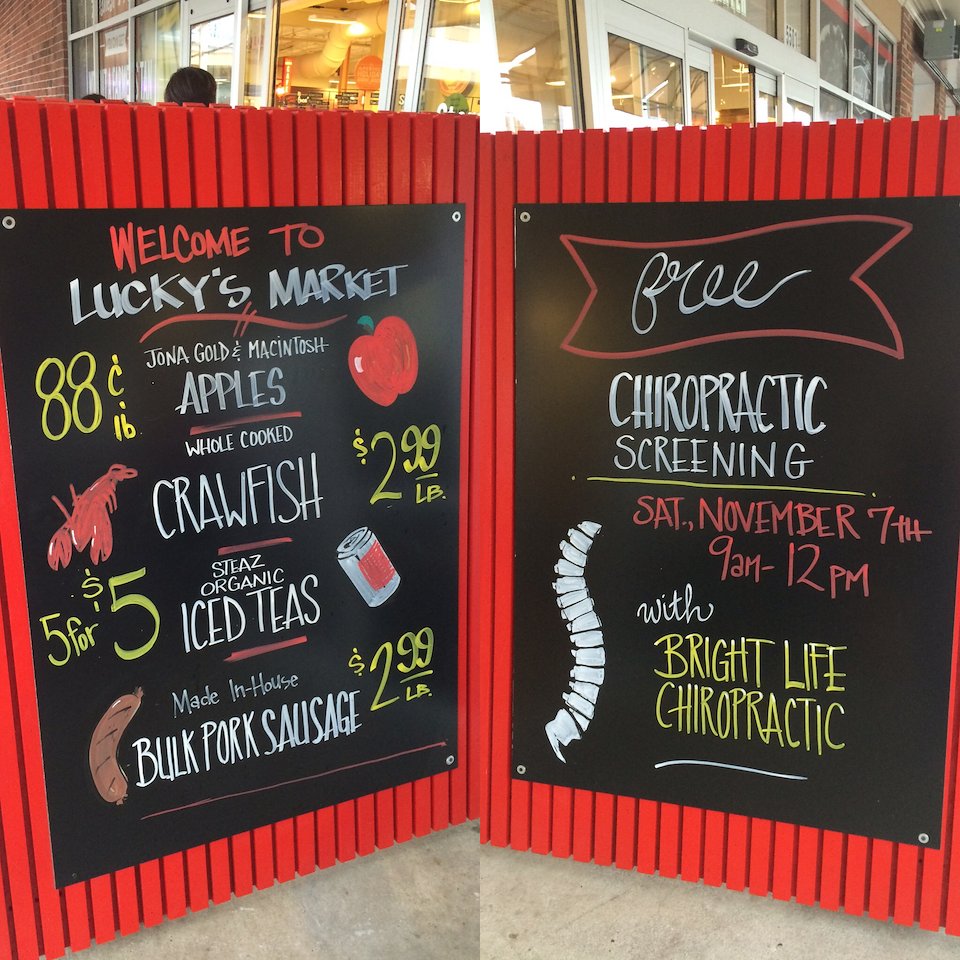 WELCOME TO
LUCKY'S MARKET
JONA GOLD & MACINTOSH
APPLES
88¢ lb
WHOLE COOKED
CRAWFISH
$2.99 LB.
STEAZ
ORGANIC
ICED TEAS
5 for $5
Made In-House
BULK PORK SAUSAGE
$2.99 LB.
free
CHIROPRACTIC
SCREENING
SAT., NOVEMBER 7TH
9am - 12 PM
with
BRIGHT LIFE
CHIROPRACTIC